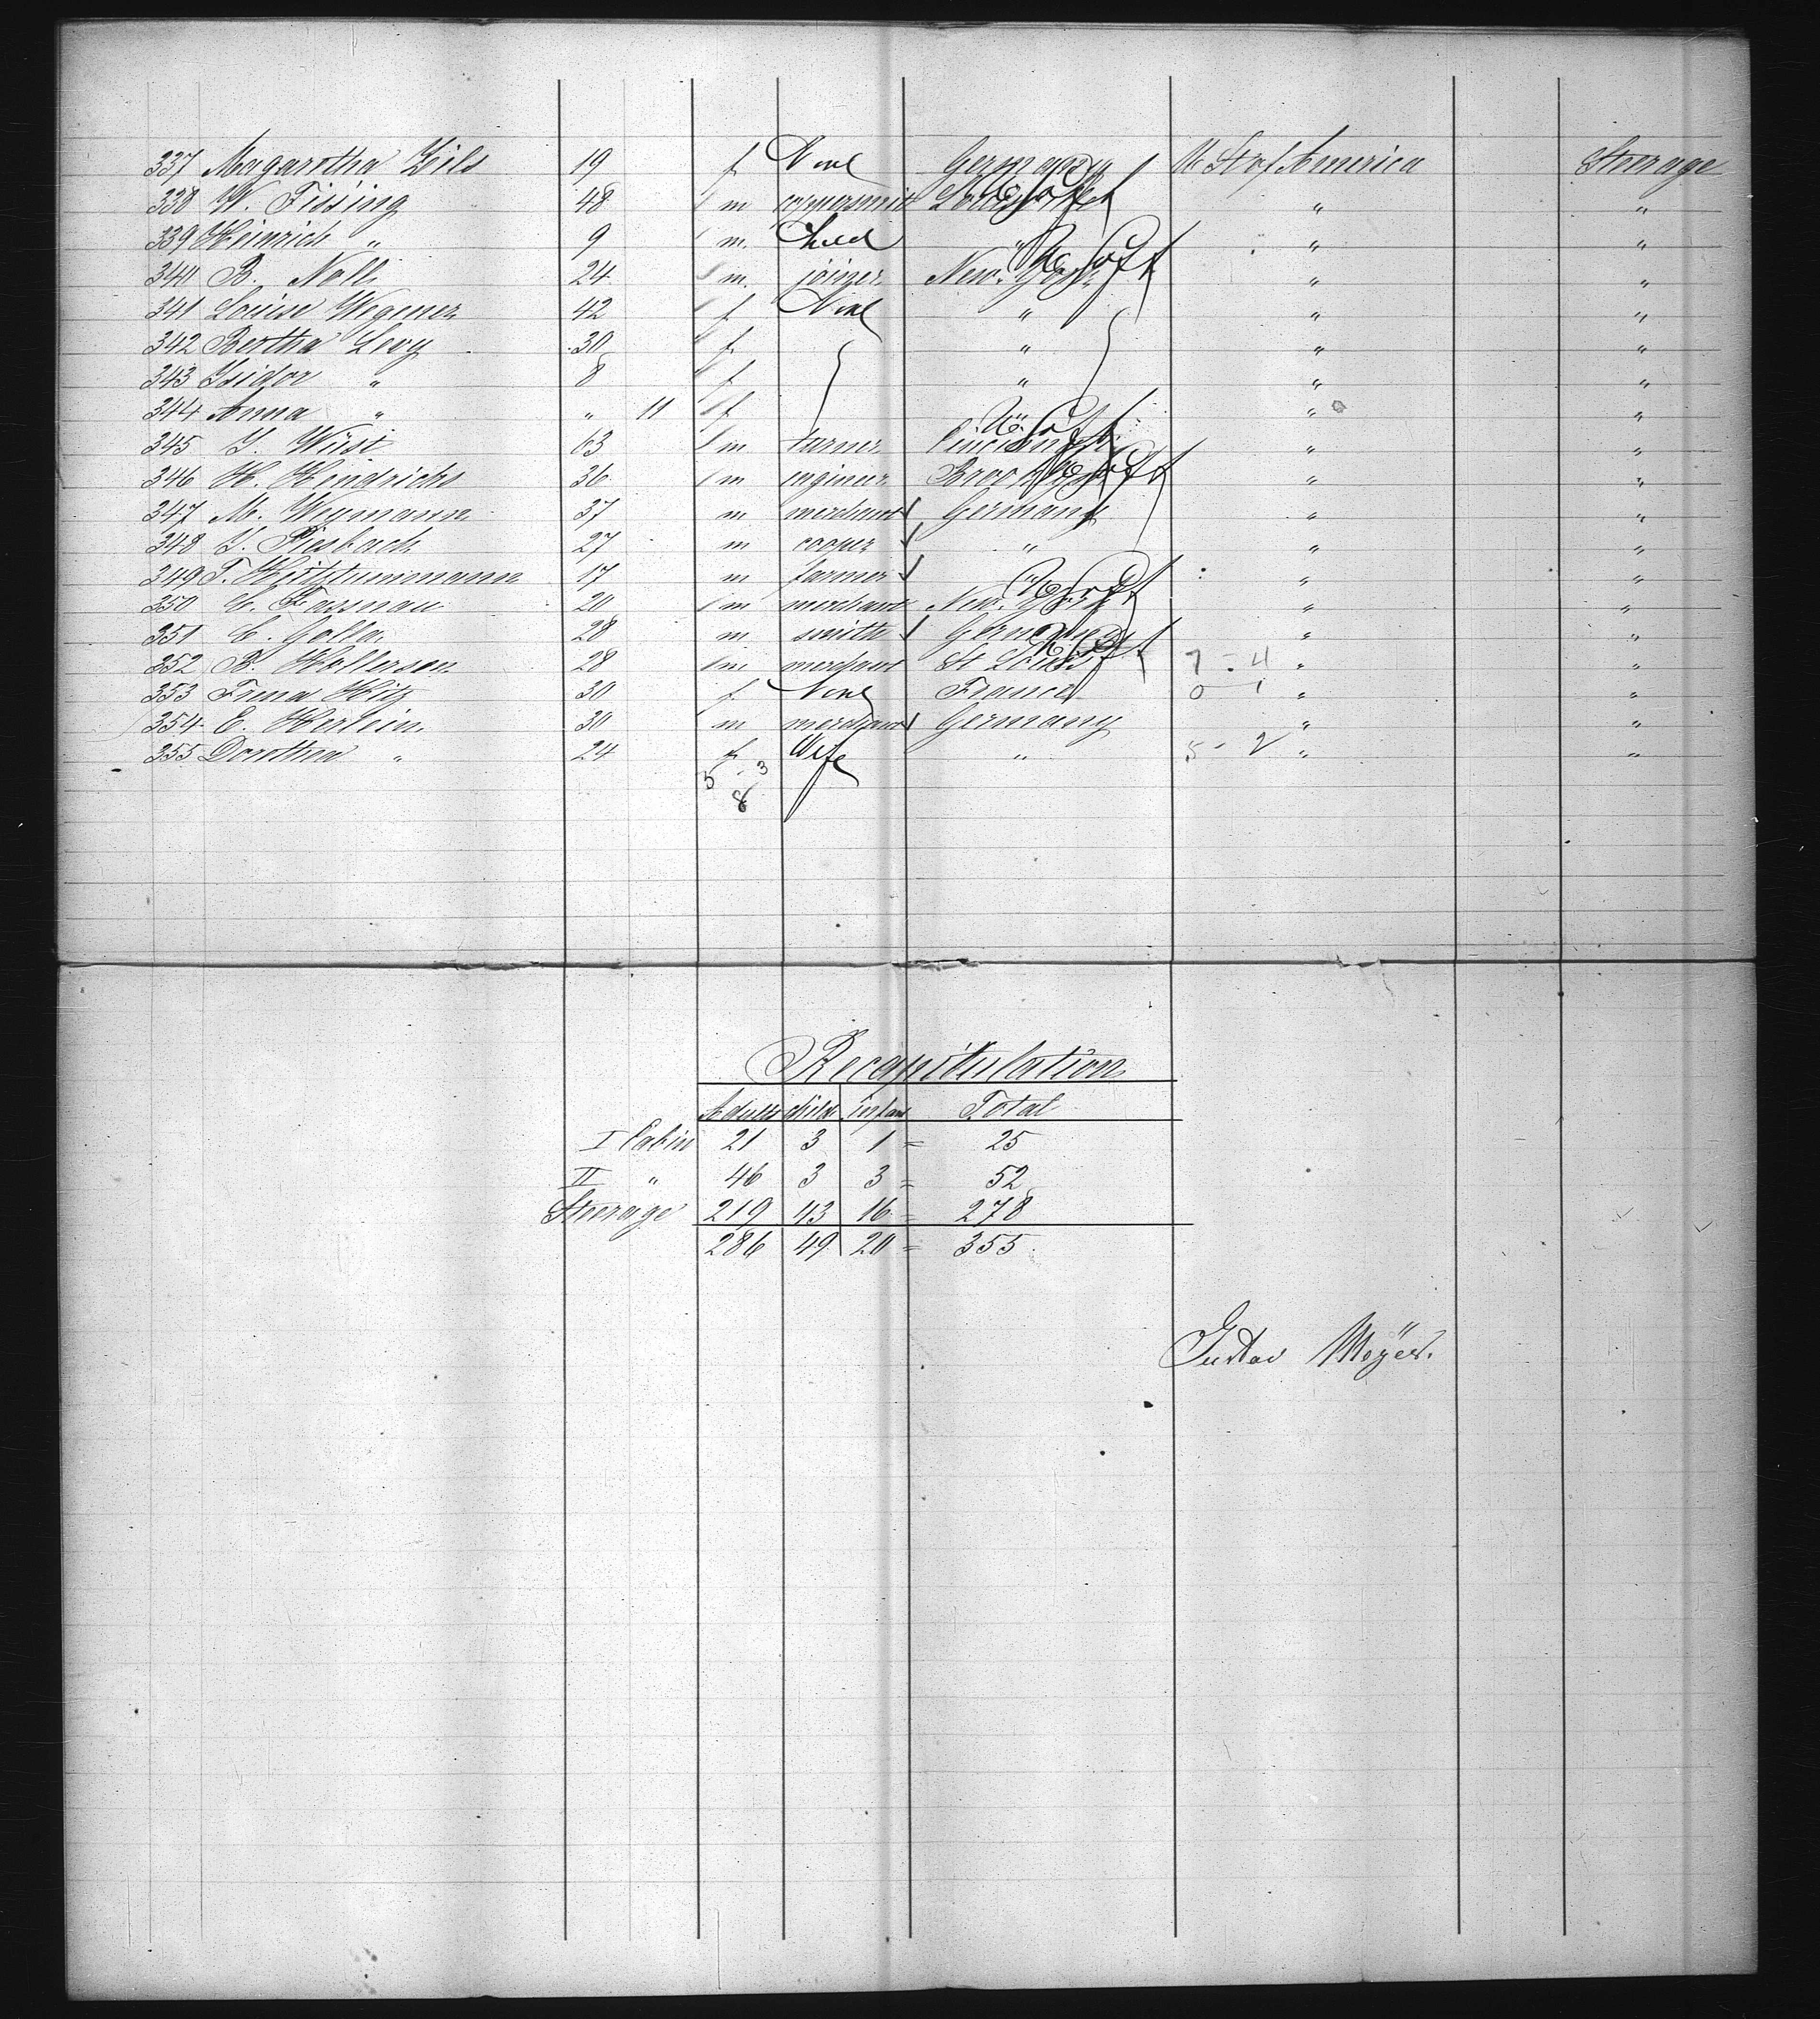 337 Magaretha Zils 19 f None Germany U. St. of America Steerage
338 W. Fissing 48 m coppersmit " "
339 Heinrich " 9 m. Child " " "
340 B. Nolli 24 m. joiner New-York " "
341 Louise Wegener 42 f None " " "
342 Bertha Levy 30 f " " "
343 Isidor " 8 f " " "
344 Anna " " 11 f " "
345 J. Wüst 63 m turner Cincinnati " "
346 H. Hendrichs 36 m engineer Brooklyn " "
347 M. Weymann 37 m merchant Germany " "
348 J. Riesbach 27 m cooper " " "
349 T. 17 m farmer " " "
350 C. Fassnau 20 m merchant New-York " "
351 C. Golla 28 m smith Germany " "
352 B. Hollersen 28 m merchant St Louis 7 - 4 " "
353 Irma Hitz 30 f None France 0 - 1 " "
354 E. Herlein 30 m merchant Germany " "
355 Dorothea " 24 f Wife " 5 - 2 " "
5 - 3
8
Recapitulation
Adults child infant Total
I Cabin 21 3 1 = 25
II " 46 3 3 = 52
Steerage 219 43 16 = 278
286 49 20 = 355
Gustav Meÿer.